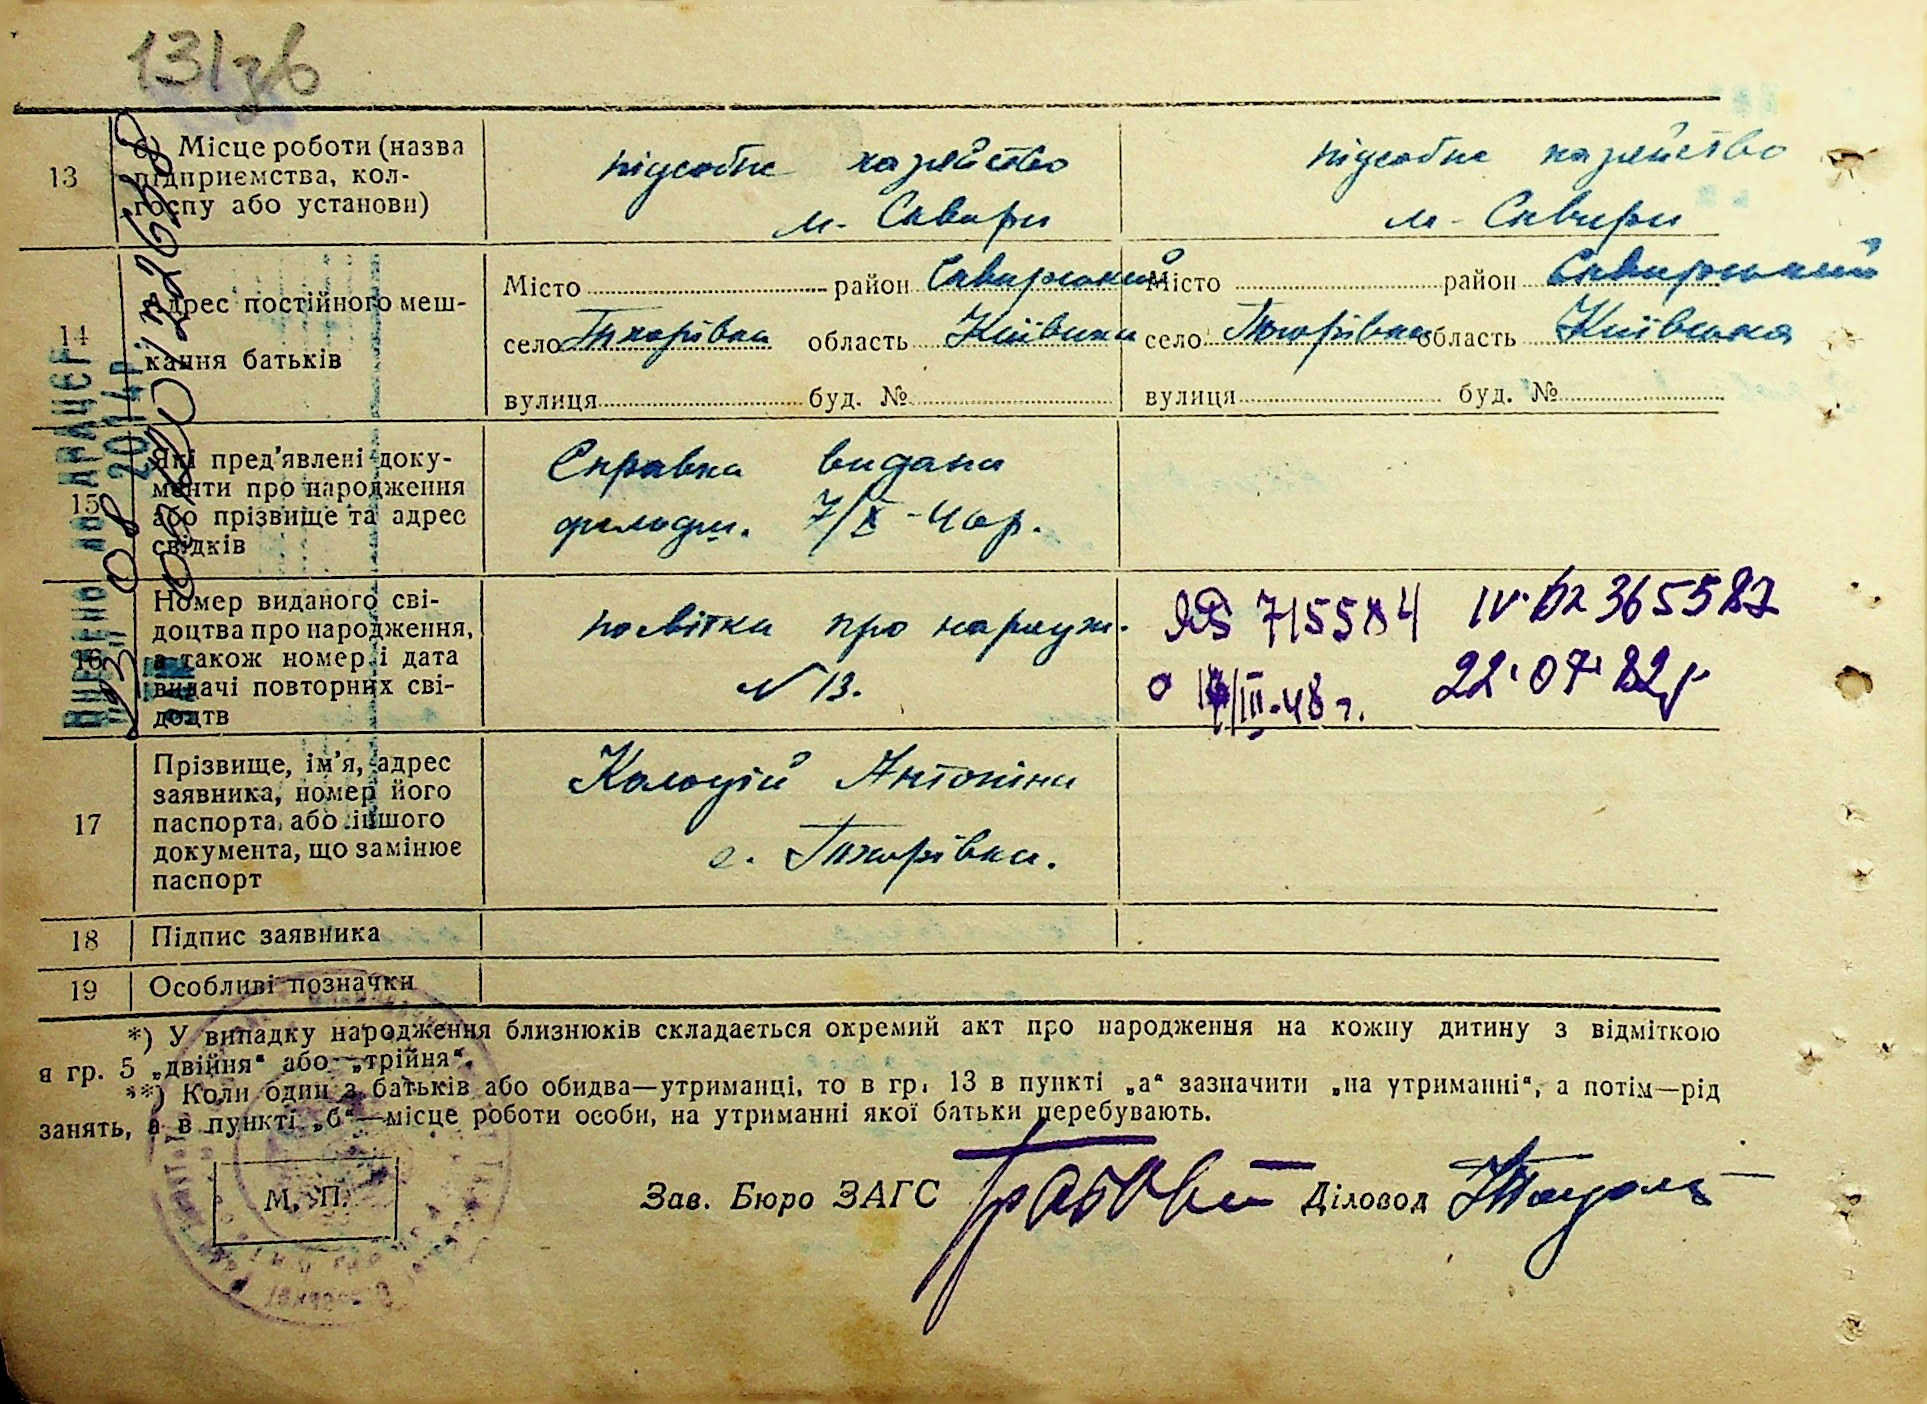 131зв
13 б) Місце роботи (назва
підприємства, кол-
госпу або установи)
підсобне хазяйство
м. Сквири
підсобне хазяйство
м. Сквири
14 Адрес постійного меш-
кання батьків
Місто район Сквирський
село Тхорівка область Київська
вулиця буд. №
Місто район Сквирський
село Тхорівка область Київська
вулиця буд. №
15 Які пред'явлені доку-
менти про народження
або прізвище та адрес
свідків
Справка видана
7/X
16 Номер виданого сві-
доцтва про народження,
а також номер і дата
видачі повторних сві-
доцтв
посвітка про народж.
N 13.
715584
/III-48 г.
365587
22.07.82г
17 Прізвище, ім'я, адрес
заявника, номер його
паспорта або іншого
документа, що замінює
паспорт
Коломій Антоніна
с. Тхорівка.
18 Підпис заявника
19 Особливі позначки
*) У випадку народження близнюків складається окремий акт про народження на кожну дитину з відміткою
в гр. 5 „двійня“ або „трійня“.
**) Коли один з батьків або обидва—утриманці, то в гр. 13 в пункті „а“ зазначити „на утриманні“, а потім—рід
занять, а в пункті „б“—місце роботи особи, на утриманні якої батьки перебувають.
М. П.
Зав. Бюро ЗАГС Діловод
Внесено до ДРАЦСГ
23 08 2014р.